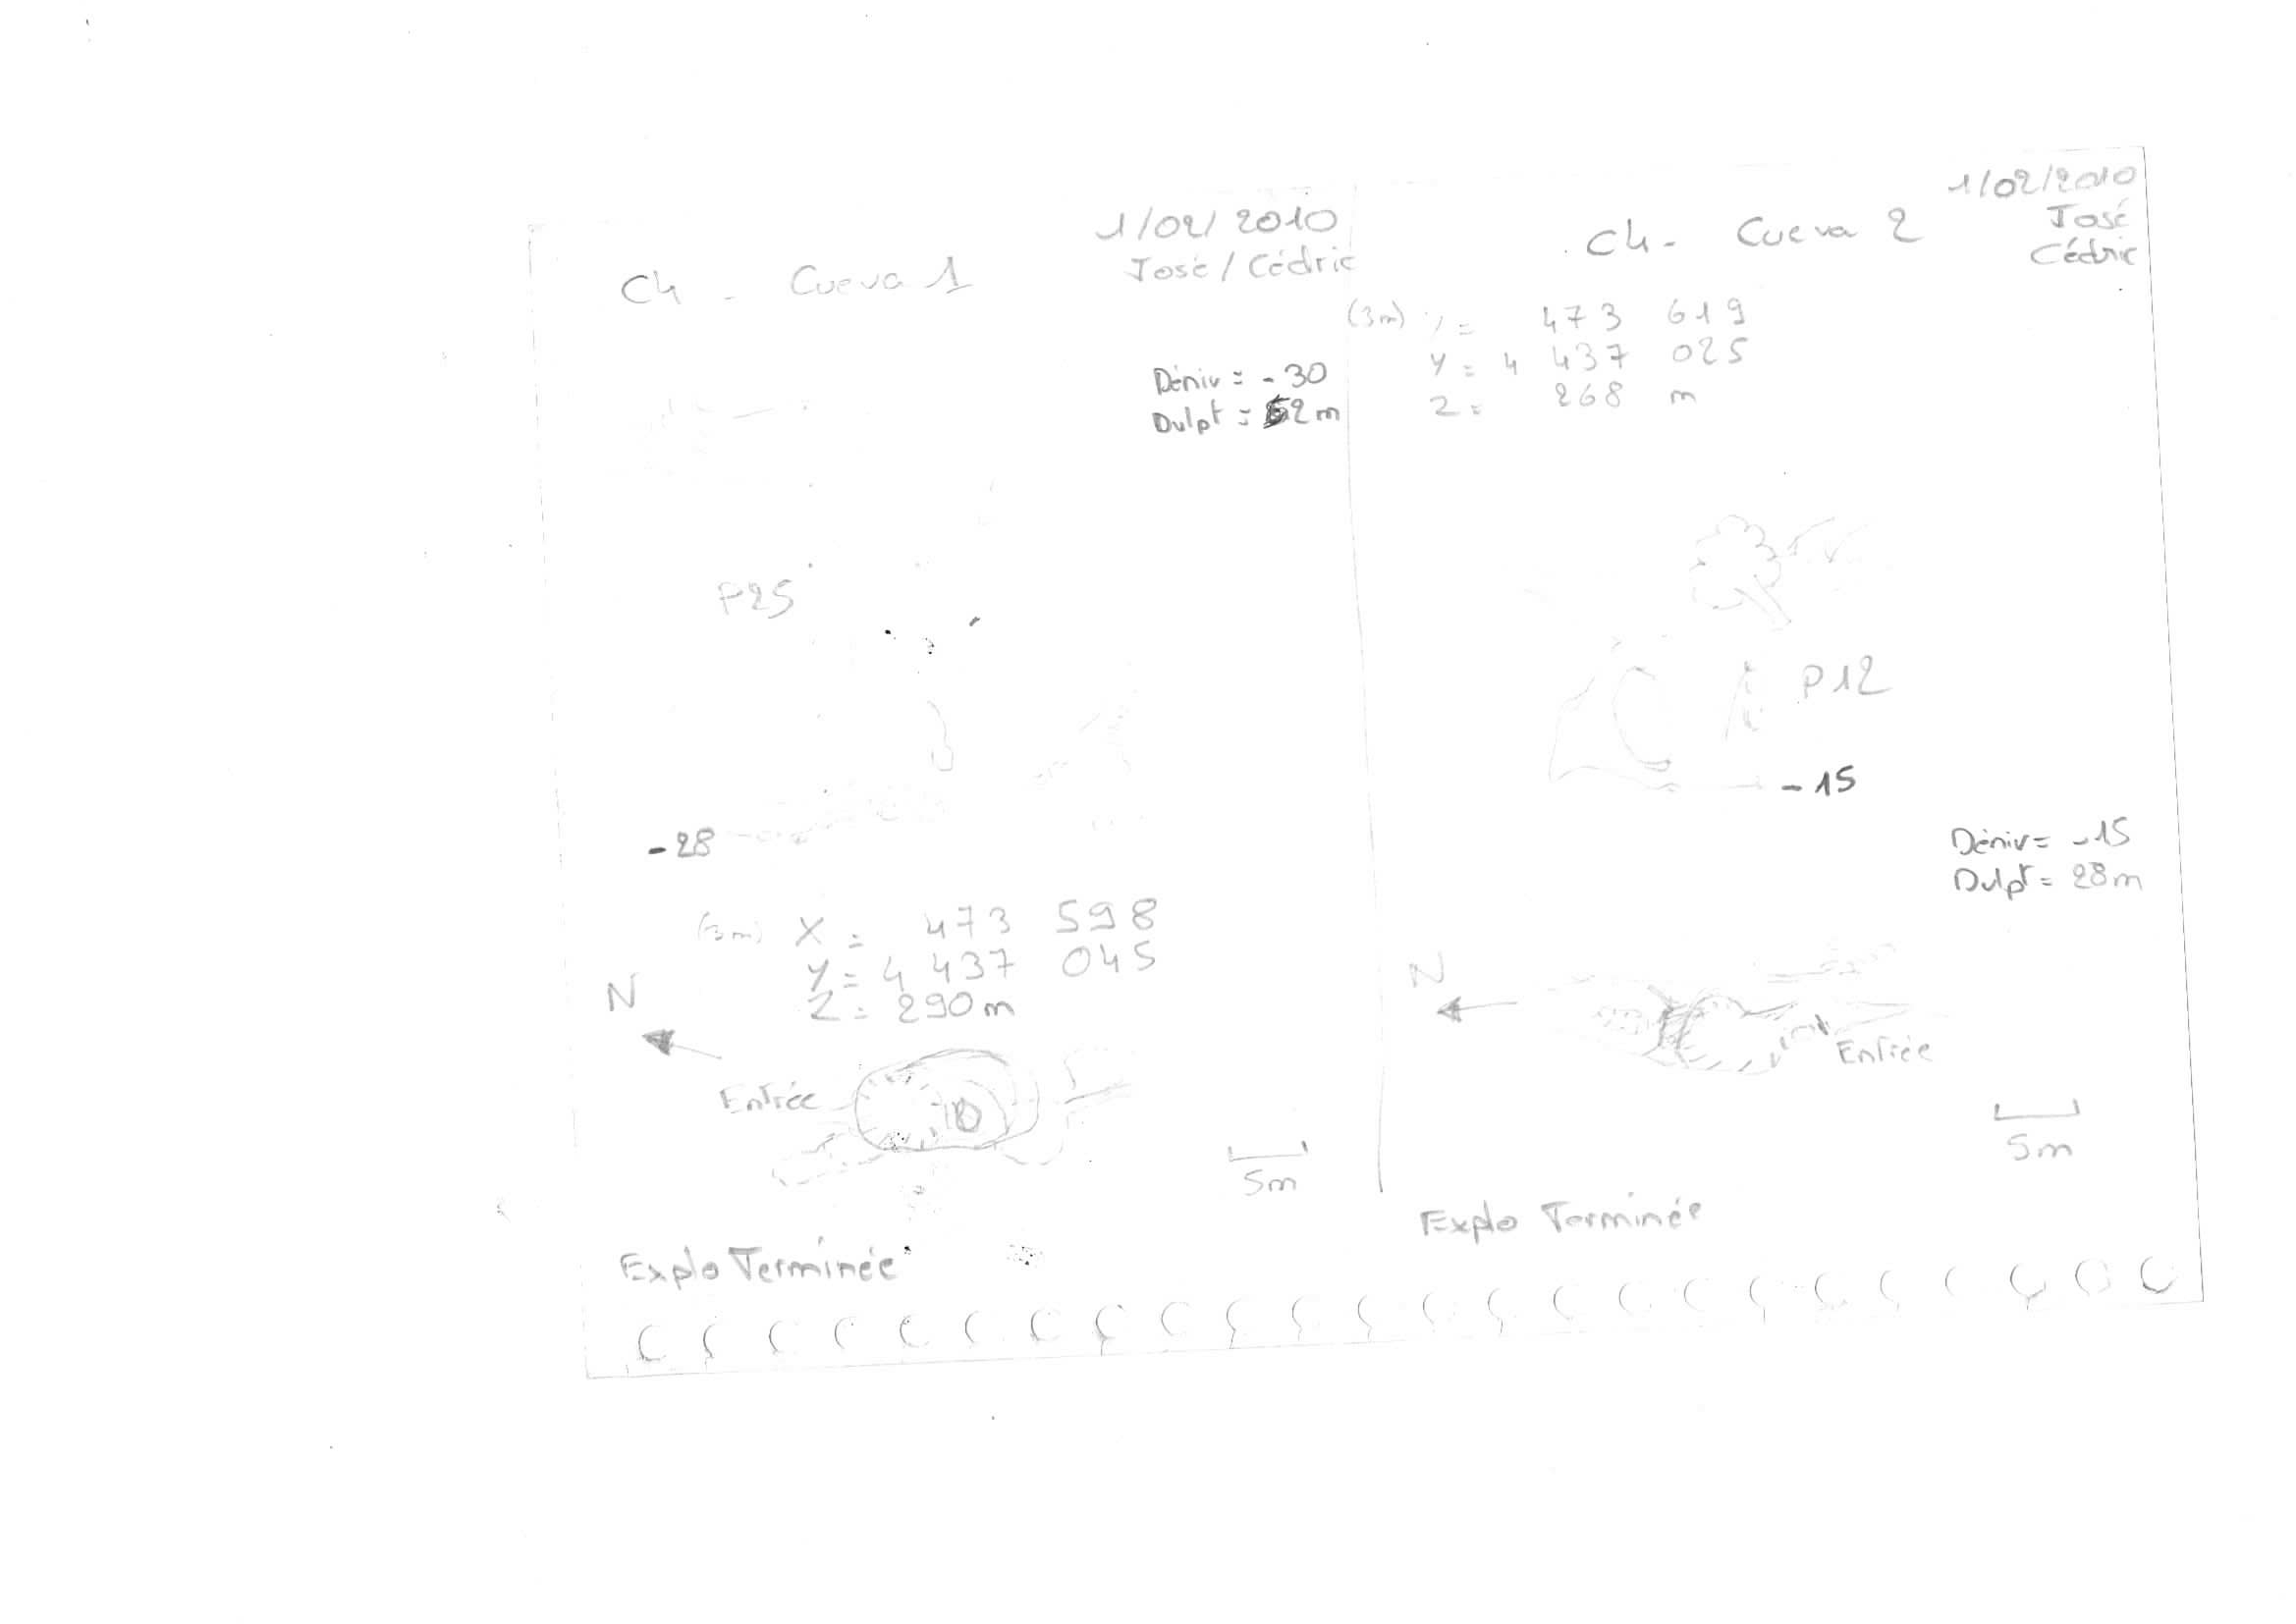 1/02/2010
José / Cédric
C4 - Cueva 1
Déniv = -30
Dvlpt = 52m
P25
-28
(3m) X = 473 598
Y = 4 437 045
Z = 290m
N
Entrée
5m
Explo Terminée
1/02/2010
José
Cédric
C4 - Cueva 2
(3m) X = 473 619
Y = 4 437 025
Z = 268 m
P12
-15
Déniv = -15
Dvlpt = 28m
N
Entrée
5m
Explo Terminée